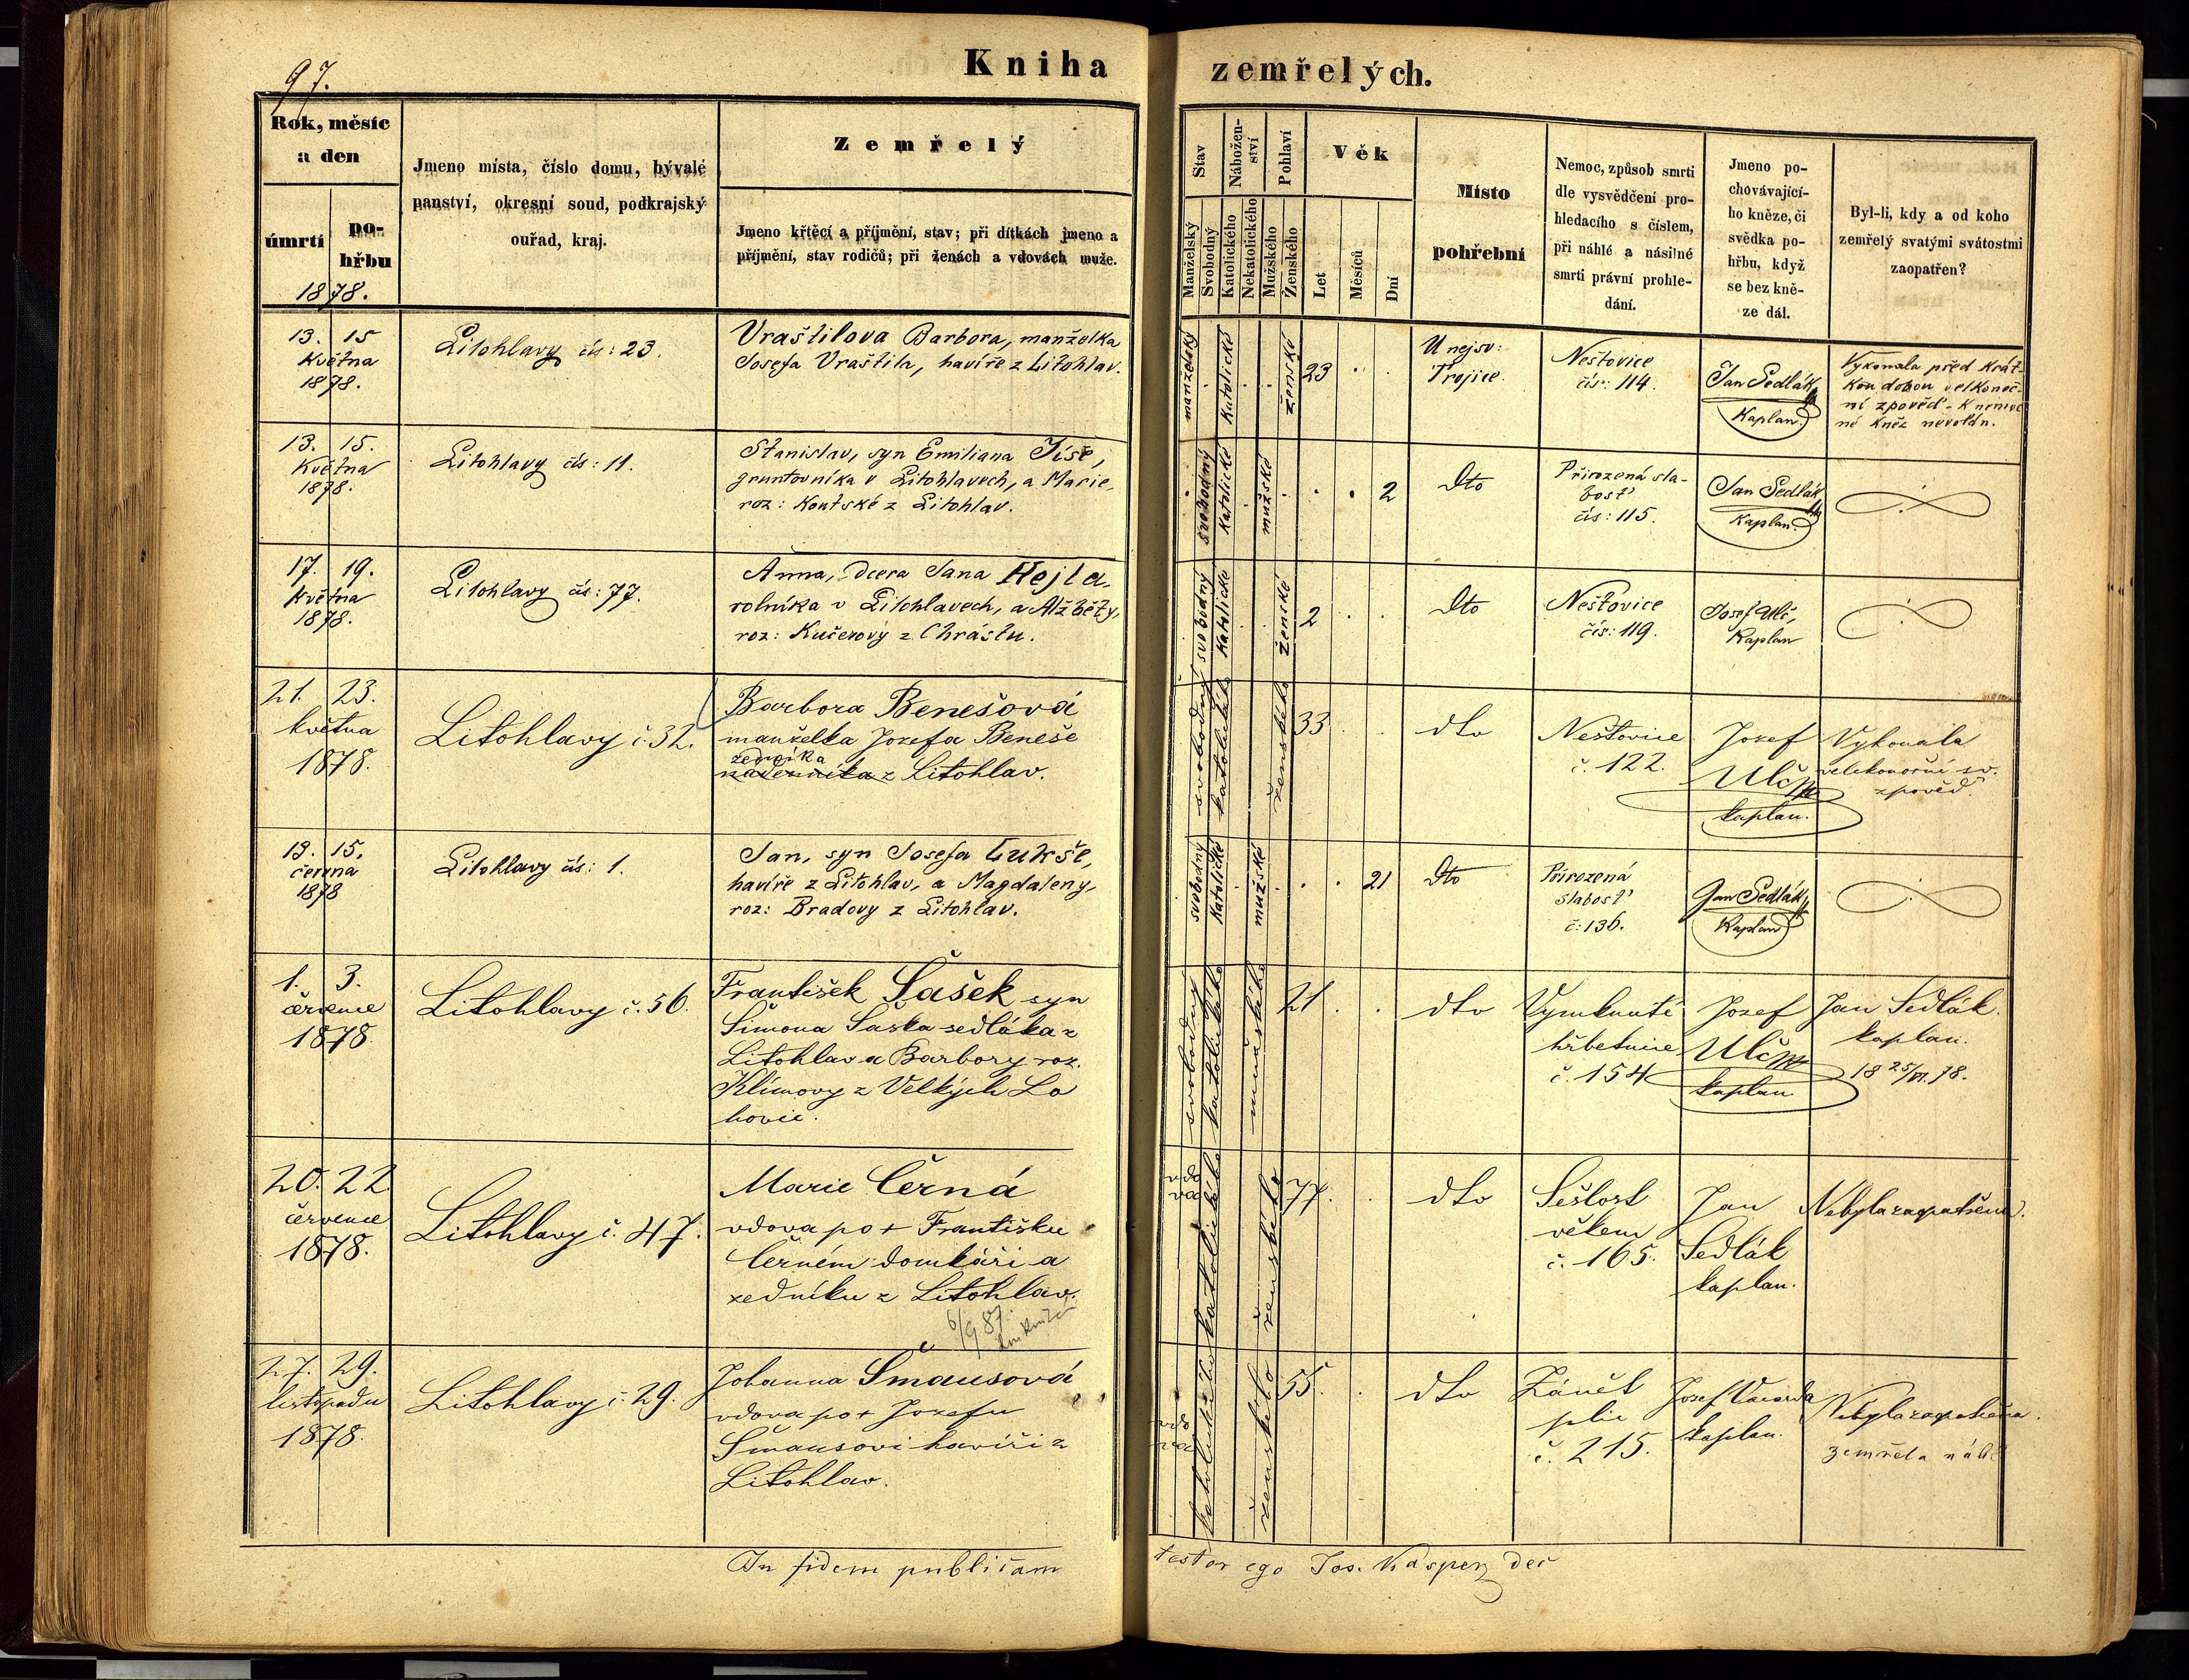 97.
Kniha zemřelých.
Rok, měsíc
a den
úmrtí
po-
hřbu
1878.
Jmeno místa, číslo domu, bývalé
panství, okresní soud, podkrajský
ouřad, kraj.
Zemřelý
Jmeno křtěcí a příjmění, stav; při dítkách jmeno a
příjmění, stav rodičů; při ženách a vdovách muže.
Stav
Manželský
Svobodný
Nábožen-
ství
Katolického
Nekatolického
Pohlaví
Mužského
Ženského
Věk
Let
Měsíců
Dní
Místo
pohřební
Nemoc, způsob smrti
dle vysvědčení pro-
hledacího s číslem,
při náhlé a násilné
smrti právní prohle-
dání.
Jmeno po-
chovávající-
ho kněze, či
svědka po-
hřbu, když
se bez kně-
ze dál.
Byl-li, kdy a od koho
zemřelý svatými svátostmi
zaopatřen?
13. 15
Května
1878.
Litohlavy čís: 23.
Vraštilova Barbora, manželka
Josefa Vraštila, havíře z Litohlav.
manželský
Katolické
ženské
23
U nejsv:
Trojice.
Neštovice
čís: 114.
Jan Sedlák
Kaplan.
Vykonala před krát-
kou dobou velkonoč-
ní zpověď - K nemoc
né kněz nevolán.
13. 15.
Května
1878.
Litohlavy čís: 11.
Stanislav, syn Emiliana Jíše,
gruntovníka v Litohlavech, a Marie,
roz: Koutské z Litohlav.
svobodný
Katolické
mužské
2
Dto
Přirozená sla-
bosť
čís: 115.
Jan Sedlák
Kaplan.
17. 19.
Května
1878.
Litohlavy čís: 77.
Anna, dcera Jana Hejla,
rolníka v Litohlavech, a Alžběty,
roz: Kučerovy z Chrástu.
svobodný
Katolické
ženské
2
Dto
Neštovice
čís: 119.
Josef Ulč,
Kaplan
21. 23.
května
1878.
Litohlavy č. 32.
Barbora Benešová
manželka Jozefa Beneše
zedníka
nádenníka z Litohlav.
svobodný
katolického
ženského
33
dto
Neštovice
č. 122.
Jozef
Ulč
kaplan.
Vykonala
velekonoční sv.
zpověď.
13. 15.
června
1878
Litohlavy čís: 1.
Jan, syn Josefa Lukše,
havíře z Litohlav, a Magdaleny,
roz: Bradovy z Litohlav.
svobodný
Katolické
mužské
21
Dto
Přirozená
slabosť
č: 136.
Jan Sedlák
Kaplan
1. 3.
července
1878
Litohlavy č. 56.
František Šašek syn
Šimona Šaška sedláka z
Litohlav a Barbory roz.
Klímovy z Velkých Lo
hovic.
svobodný
katolického
mužského
21
dto
Vymknutí
hřbetnice
č. 154
Jozef
Ulč
kaplan
Jan Sedlák
kaplan.
18 25/VI. 78.
20. 22.
července
1878.
Litohlavy č. 47.
Marie Černá
vdova po + Františku
Černém domkáři a
zedníku z Litohlav.
6/9 87.
vdo
va
katolického
ženského
77.
dto
Sešlost
věkem
č. 165.
Jan
Sedlák
kaplan.
Nebyla zaopatřena.
27. 29.
listopadu
1878.
Litohlavy č. 29.
Johanna Šmausová
vdova po + Jozefu
Šmausovi havíři z
Litohlav.
vdo
va
katolického
ženského
55.
dto
Zánět
plic
č. 215.
Jozef
kaplan.
Nebyla zaopatřena.
zemřela náhl
In fidem publicam testor ego Jos. Kasper, dec